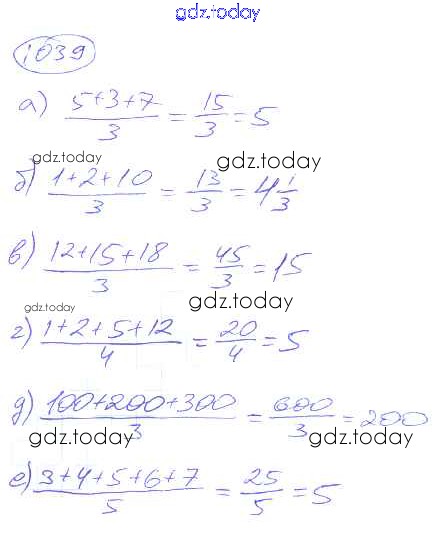 gdz.today
1039
а) (5+3+7)/3 = 15/3 = 5
gdz.today gdz.today
б) (1+2+10)/3 = 13/3 = 4 1/3
в) (12+15+18)/3 = 45/3 = 15
gdz.today gdz.today
г) (1+2+5+12)/4 = 20/4 = 5
д) (100+200+300)/3 = 600/3 = 200
gdz.today gdz.today
е) (3+4+5+6+7)/5 = 25/5 = 5